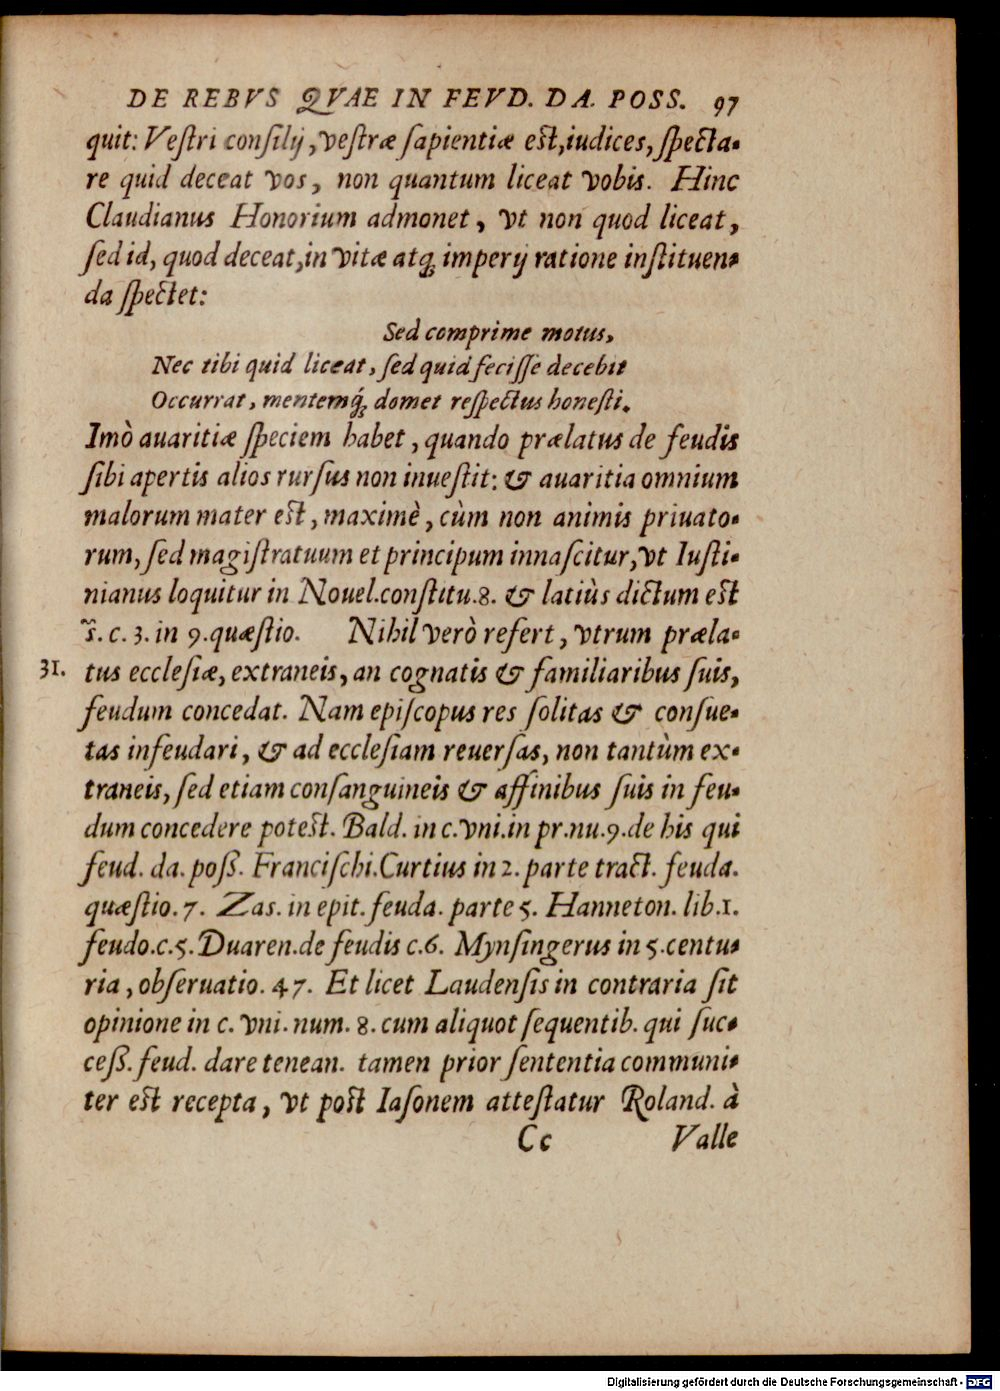 DE REBVS QVAE IN FEVD. DA. POSS. 97
quit: Vestri consilij, vestræ sapientiæ est, iudices, specta-
re quid deceat vos, non quantum liceat vobis. Hinc
Claudianus Honorium admonet, vt non quod liceat,
sed id, quod deceat, in vitæ atq; imperij ratione instituen-
da spectet:
Sed comprime motus,
Nec tibi quid liceat, sed quid fecisse decebit
Occurrat, mentemq́; domet respectus honesti.
Imò auaritiæ speciem habet, quando prælatus de feudis
sibi apertis alios rursus non inuestit: & auaritia omnium
malorum mater est, maximè, cùm non animis priuato-
rum, sed magistratuum et principum innascitur, vt Iusti-
nianus loquitur in Nouel. constitu. 8. & latiùs dictum est
s̃. c. 3. in 9. quæstio. Nihil verò refert, vtrum præla-
31. tus ecclesiæ, extraneis, an cognatis & familiaribus suis,
feudum concedat. Nam episcopus res solitas & consue-
tas infeudari, & ad ecclesiam reuersas, non tantùm ex-
traneis, sed etiam consanguineis & affinibus suis in feu-
dum concedere potest. Bald. in c. vni. in pr. nu. 9. de his qui
feud. da. poß. Francischi. Curtius in 2. parte tract. feuda.
quæstio. 7. Zas. in epit. feuda. parte 5. Hanneton. lib. 1.
feudo. c. 5. Duaren. de feudis c. 6. Mynsingerus in 5. centu-
ria, obseruatio. 47. Et licet Laudensis in contraria sit
opinione in c. vni. num. 8. cum aliquot sequentib. qui suc-
ceß. feud. dare tenean. tamen prior sententia communi-
ter est recepta, vt post Iasonem attestatur Roland. à
Cc Valle
Digitalisierung gefördert durch die Deutsche Forschungsgemeinschaft - DFG